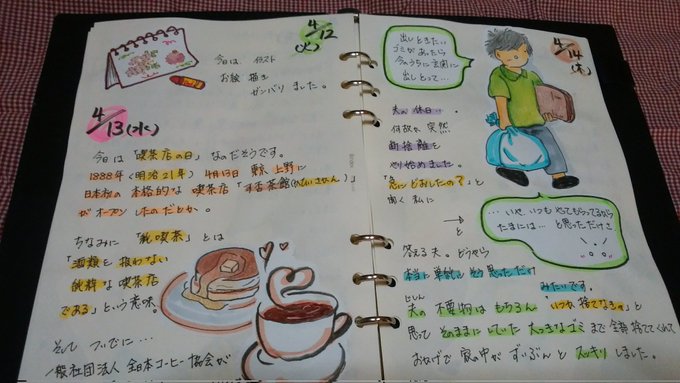 4/12
(火)
今日は イラスト
お絵描き
ガンバリました。
4/13(水)
今日は「喫茶店の日」なのだそうです。
1888年(明治21年)4月13日 東京 上野に
日本初の本格的な喫茶店「可否茶館(かひいさかん)」
がオープンしたのだとか。
ちなみに「純喫茶」とは
「酒類を扱わない
純粋な喫茶店
である」という意味。
そして ついでに…
一般社団法人 全日本コーヒー協会が
4/14
(木)
出しときたい
ゴミがあったら
今のうちに玄関に
出しとって…
夫の休日…
何故か突然
断捨離を
やり始めました。
「急にどおしたの?」と
聞く私に
→と
…いや、いつもやてもらってるから
たまには…と思っただけさ
答える夫。どうやら
本当に単純にそう思っただけ
みたいです。
夫の不要物はもちろん「いつか捨てなきゃ」と
思ってそのままにしていた大っきなゴミまで全部捨ててくれて
おかげで家の中がずいぶんとスッキリしました。